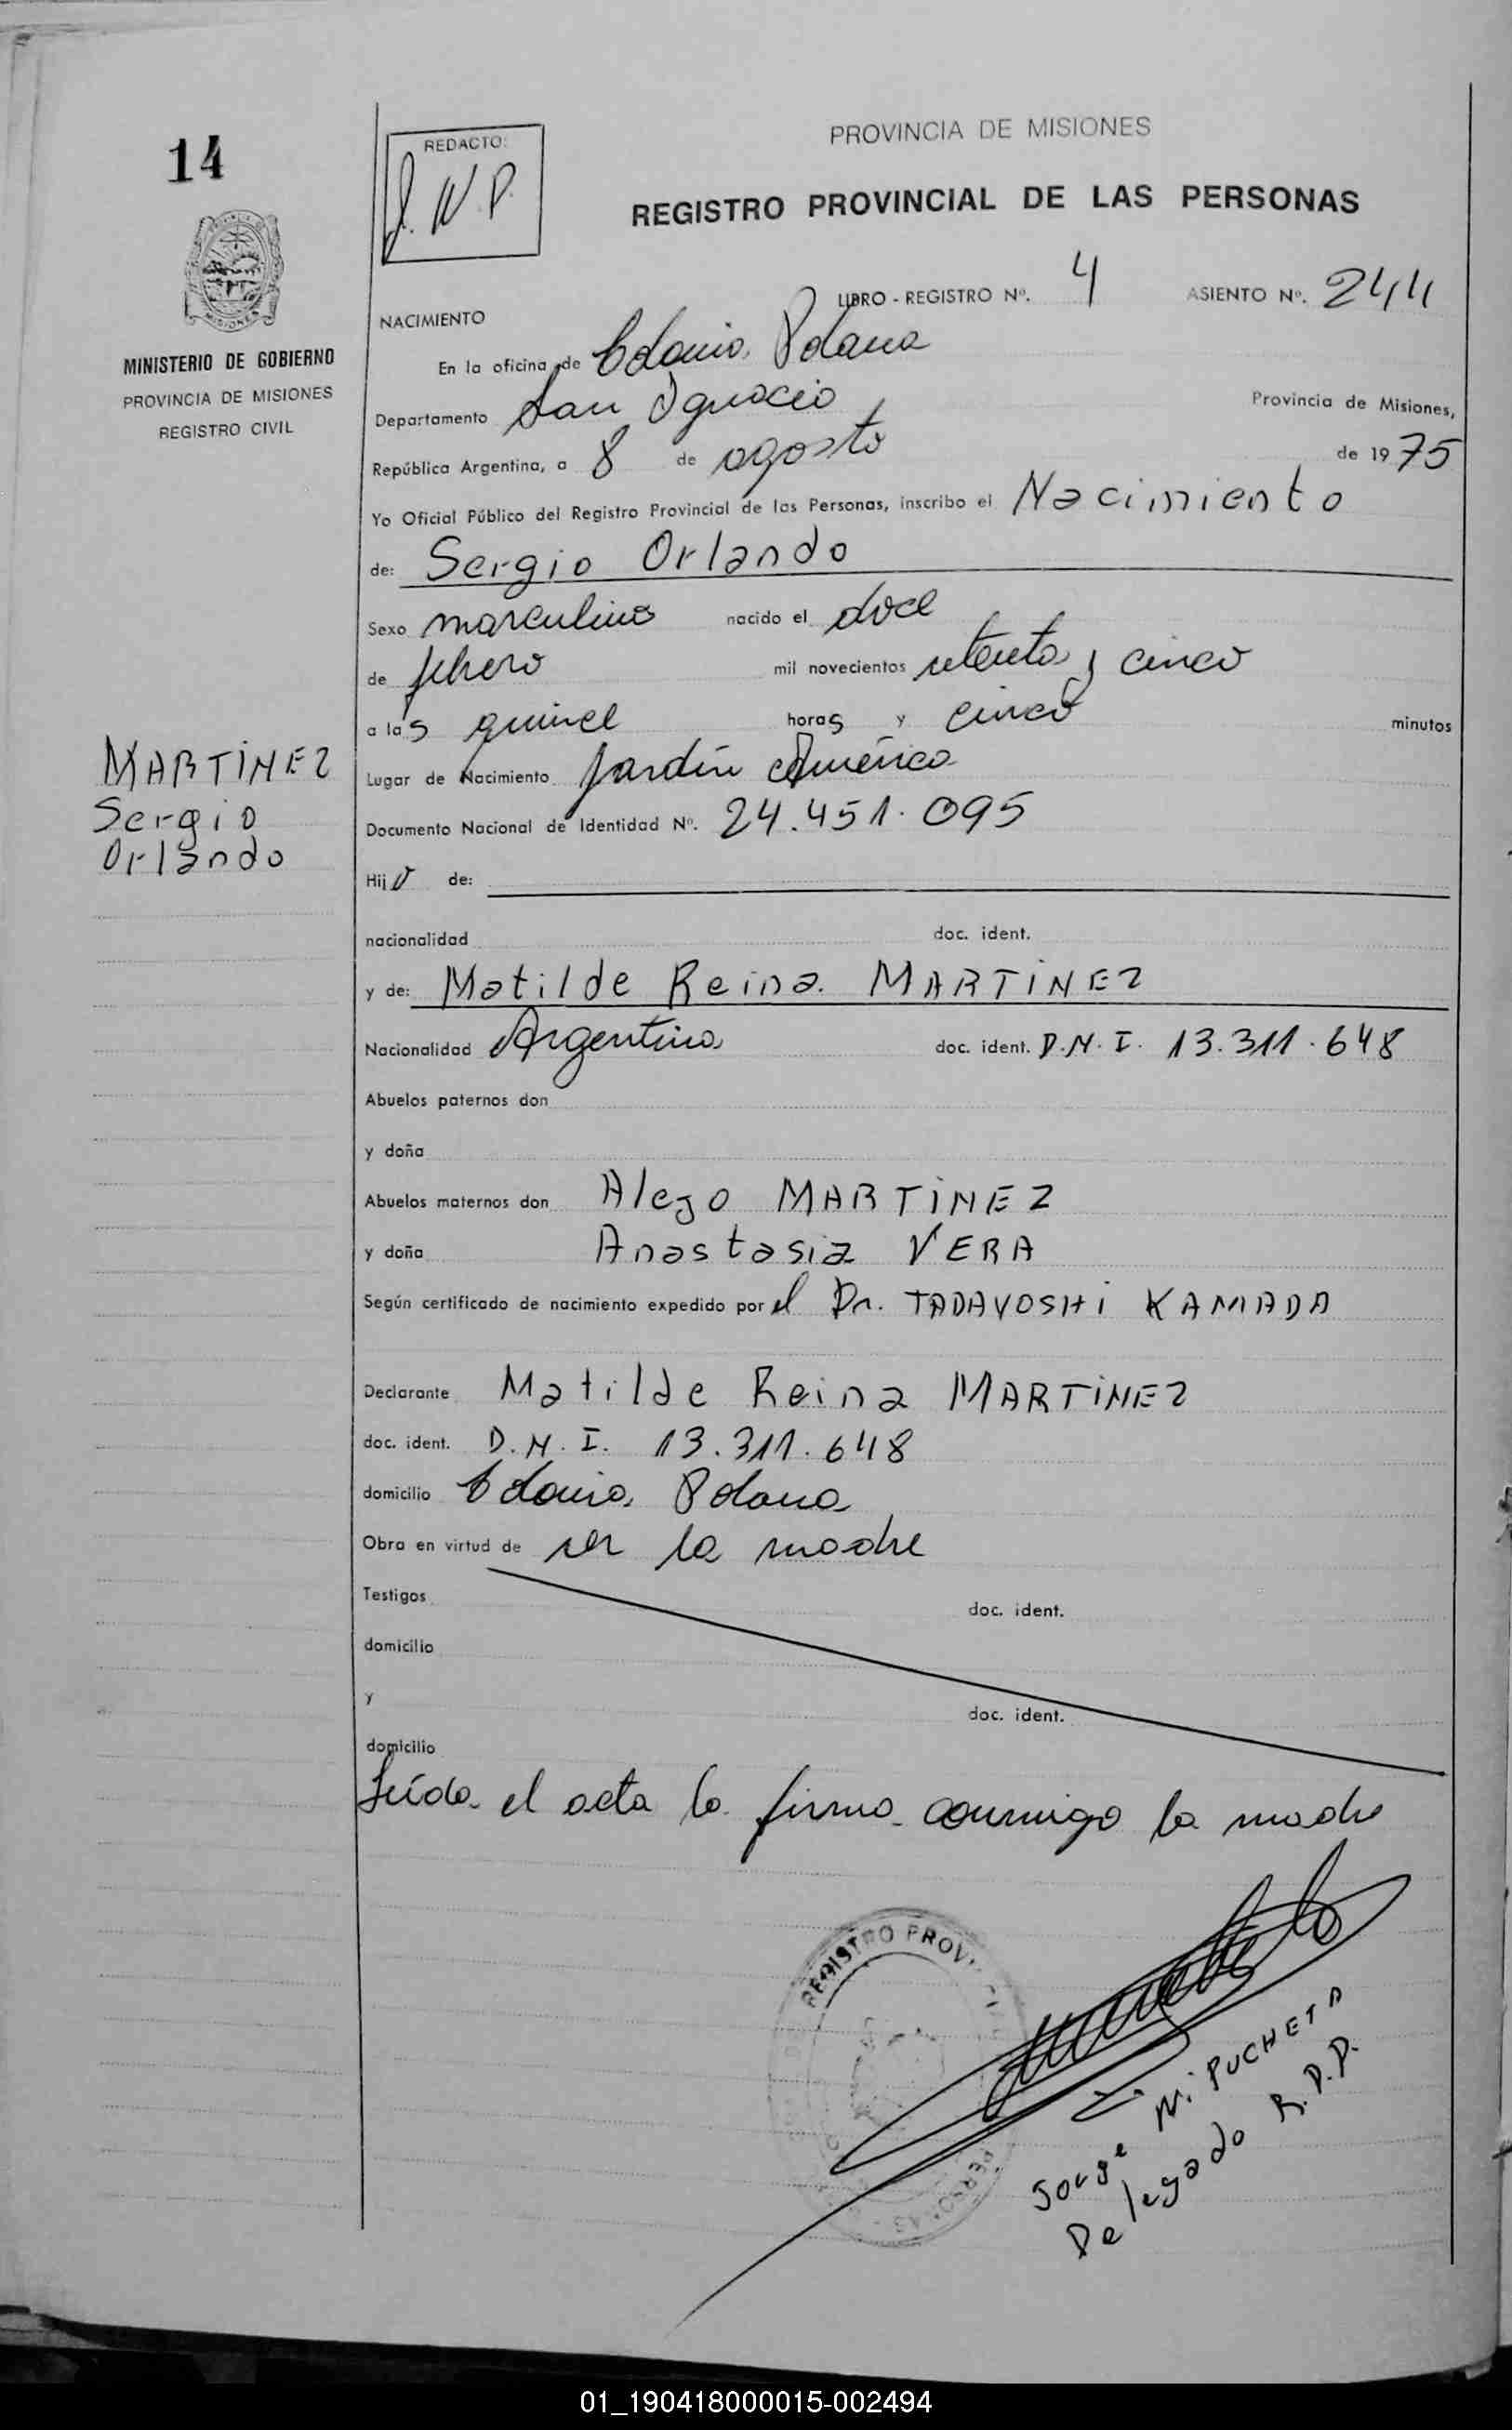 14
MISIONES
MINISTERIO DE GOBIERNO
PROVINCIA DE MISIONES
REGISTRO CIVIL
MARTINEZ
Sergio
Orlando
REDACTO:
J. N. P.
PROVINCIA DE MISIONES
REGISTRO PROVINCIAL DE LAS PERSONAS
LIBRO - REGISTRO Nº. 4 ASIENTO Nº. 244
NACIMIENTO
En la oficina de Colonia Polana
Departamento San Ignacio Provincia de Misiones,
República Argentina, a 8 de agosto de 1975
Yo Oficial Público del Registro Provincial de las Personas, inscribo el Nacimiento
de: Sergio Orlando
Sexo masculino nacido el doce
de febrero mil novecientos setenta y cinco
a las quince horas y cinco minutos
Lugar de Nacimiento Jardín América
Documento Nacional de Identidad Nº. 24.451.095
Hijo de:
nacionalidad doc. ident.
y de: Matilde Reina MARTINEZ
Nacionalidad Argentina doc. ident. D.N.I. 13.311.648
Abuelos paternos don
y doña
Abuelos maternos don Alejo MARTINEZ
y doña Anastasia VERA
Según certificado de nacimiento expedido por el Dr. TADAYOSHI KAMADA
Declarante Matilde Reina MARTINEZ
doc. ident. D.N.I. 13.311.648
domicilio Colonia Polana
Obra en virtud de ser la madre
Testigos doc. ident.
domicilio
y doc. ident.
domicilio
Leída el acta la firma conmigo la madre
REGISTRO PROVINCIAL
PERSONAS
Jorge N. PUCHETA
Delegado R.P.P.
01_190418000015-002494